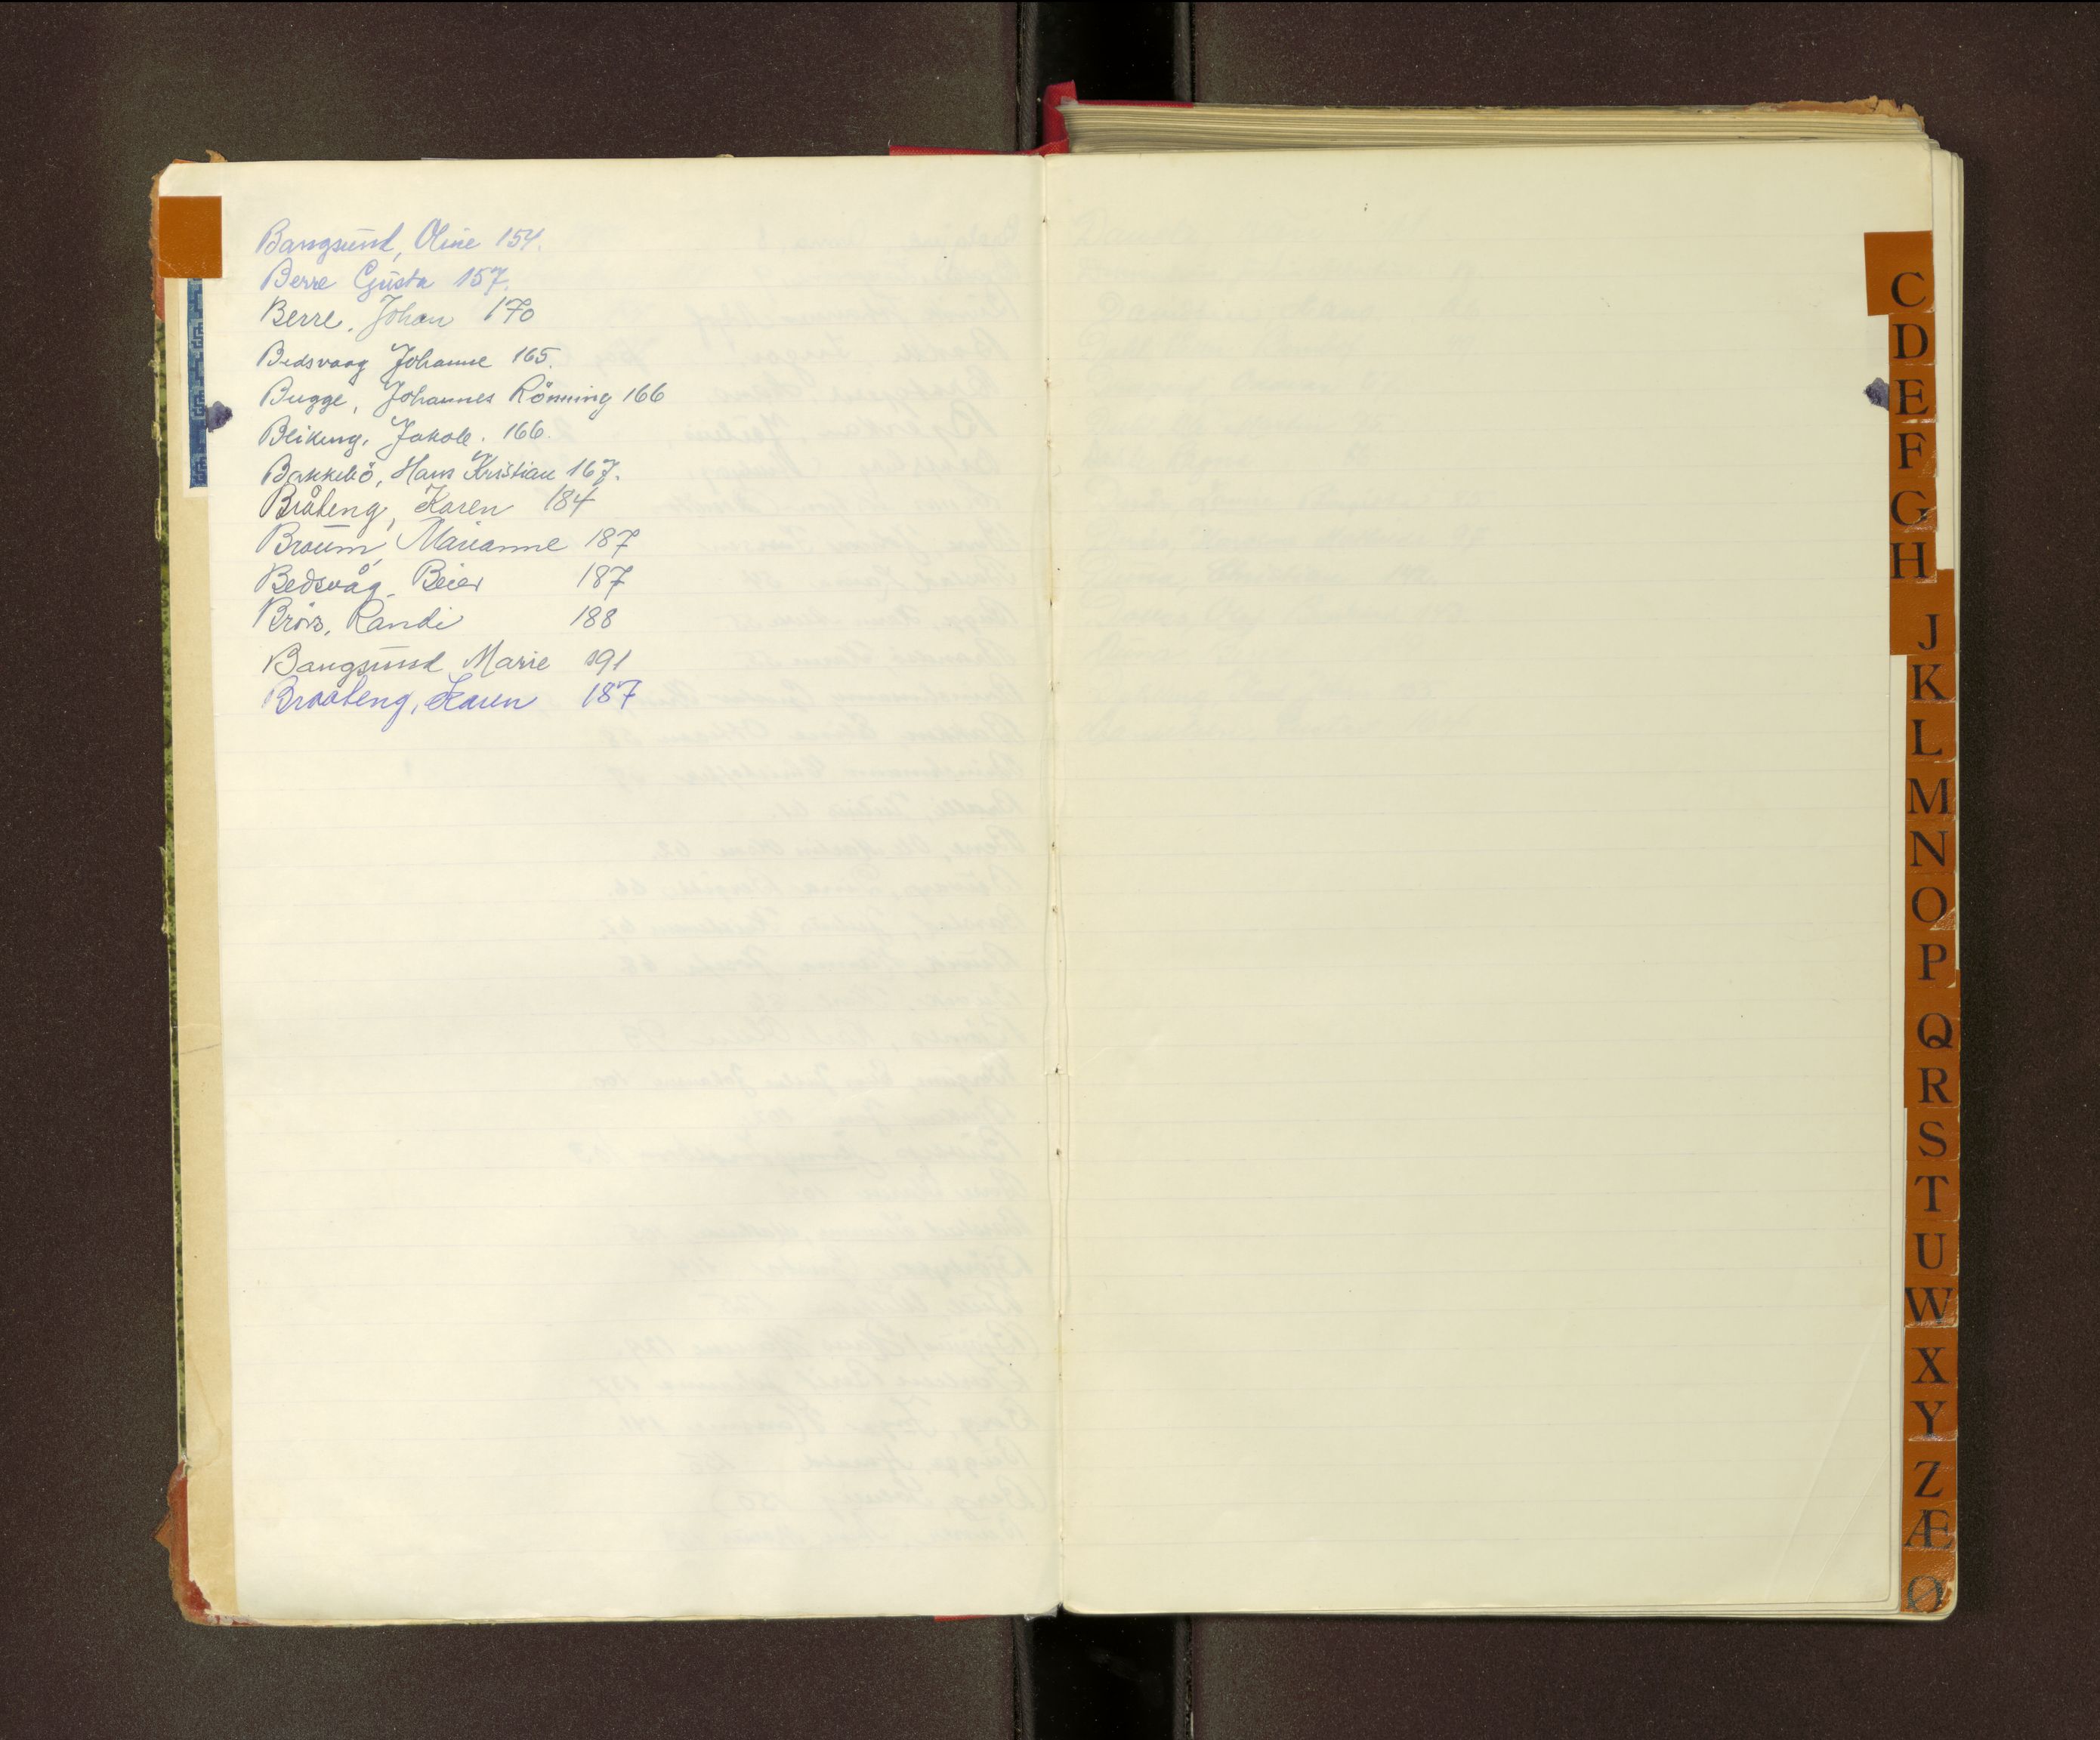 Bangsund, Oline 154.
Berre Gusta 157.
Berre, Johan 170
Bedsvaag Johanne 165.
Bugge, Johannes Rönning 166
Blikeng, Jakob. 166.
Bakkebö, Hans Kristian 167.
Bråteng, Karen 184
Braum, Marianne 187
Bedsvåg, Beier 187
Brörs, Randi 188
Bangsund Marie 191
Braateng, Karen 187
C
D
E
F
G
H
J
K
L
M
N
O
P
Q
R
S
T
U
W
X
Y
Z
Æ
Ø